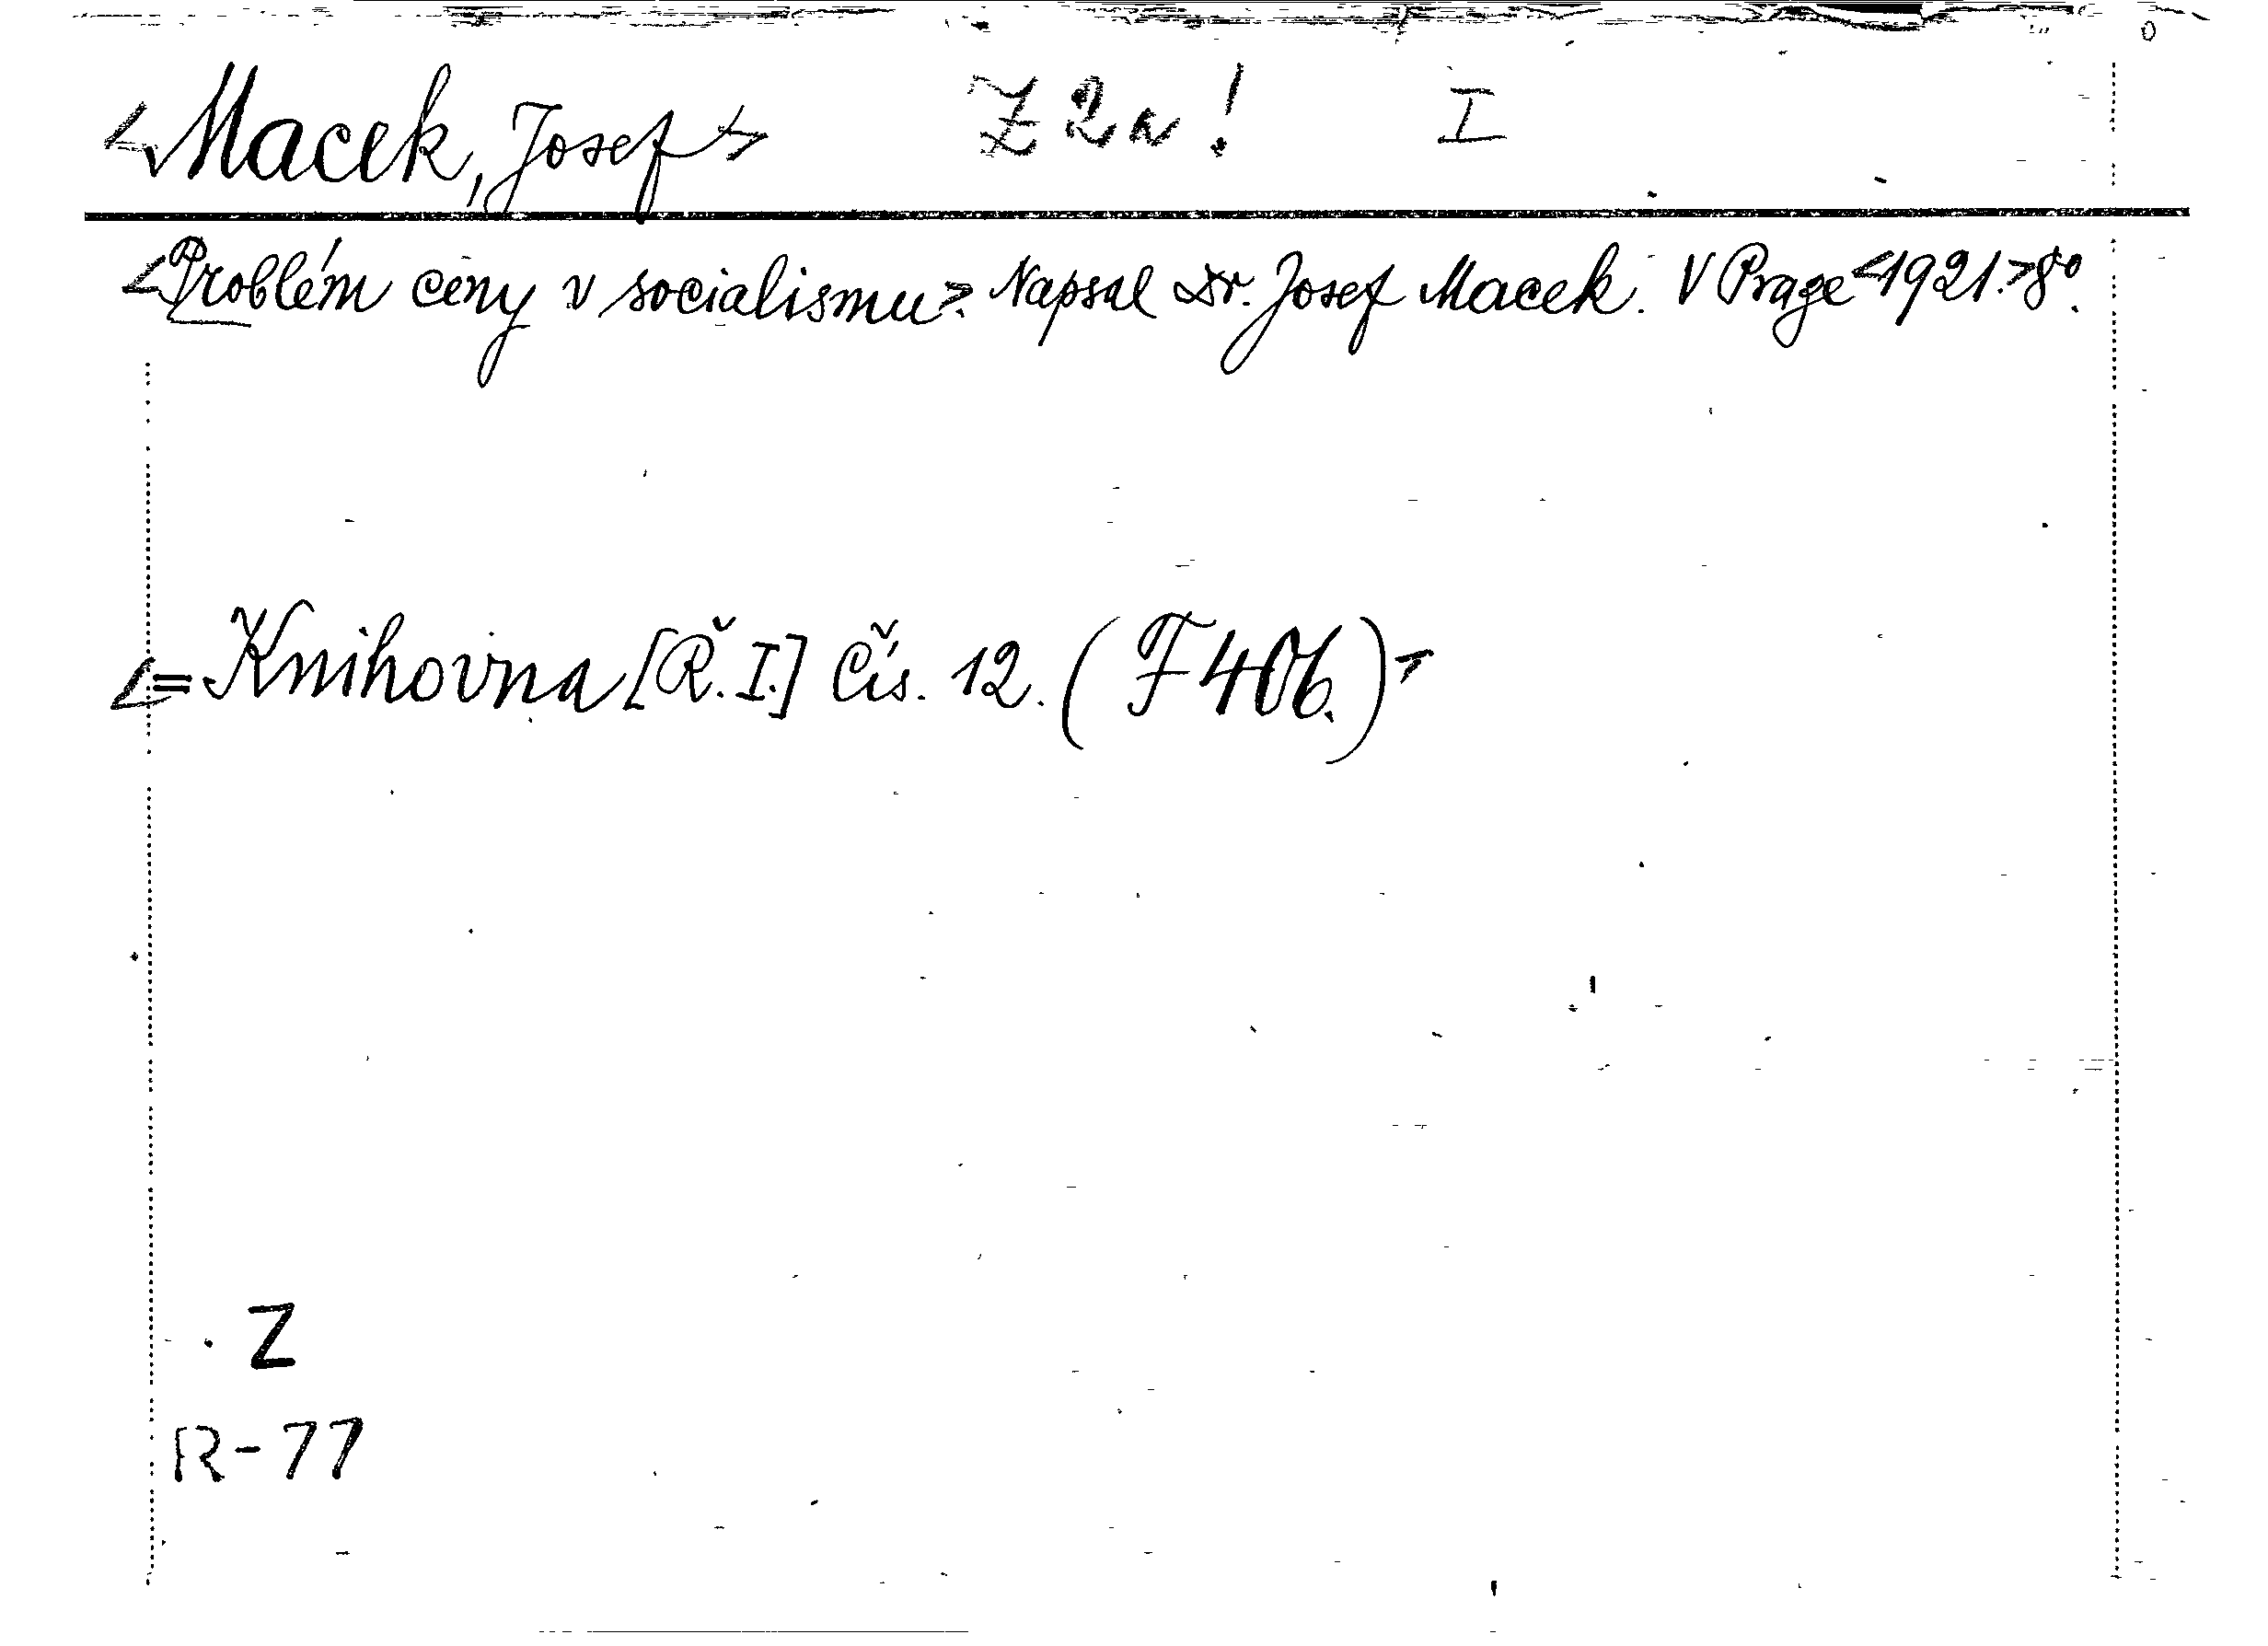 <Macek, Josef> Z 2a! I
<Problém ceny v socialismu>. Napsal Dr. Josef Macek. V Praze <1921.> 8°.
<= Knihovna [Ř. I.] Čís. 12. (F 406.)>
Z
R-77